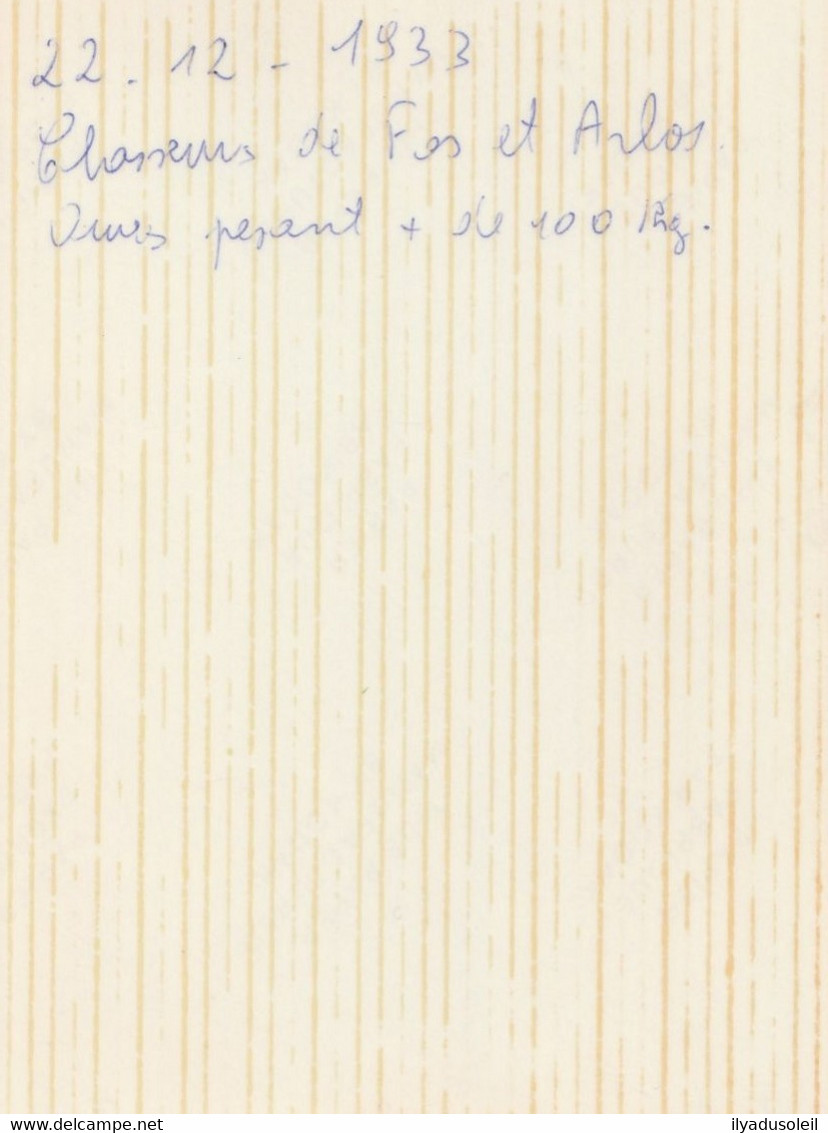 22.12-1933
Chasseurs de Fos et Arlos.
Ours pesant + de 100 Kg.
www.delcampe.net
ilyadusoleil